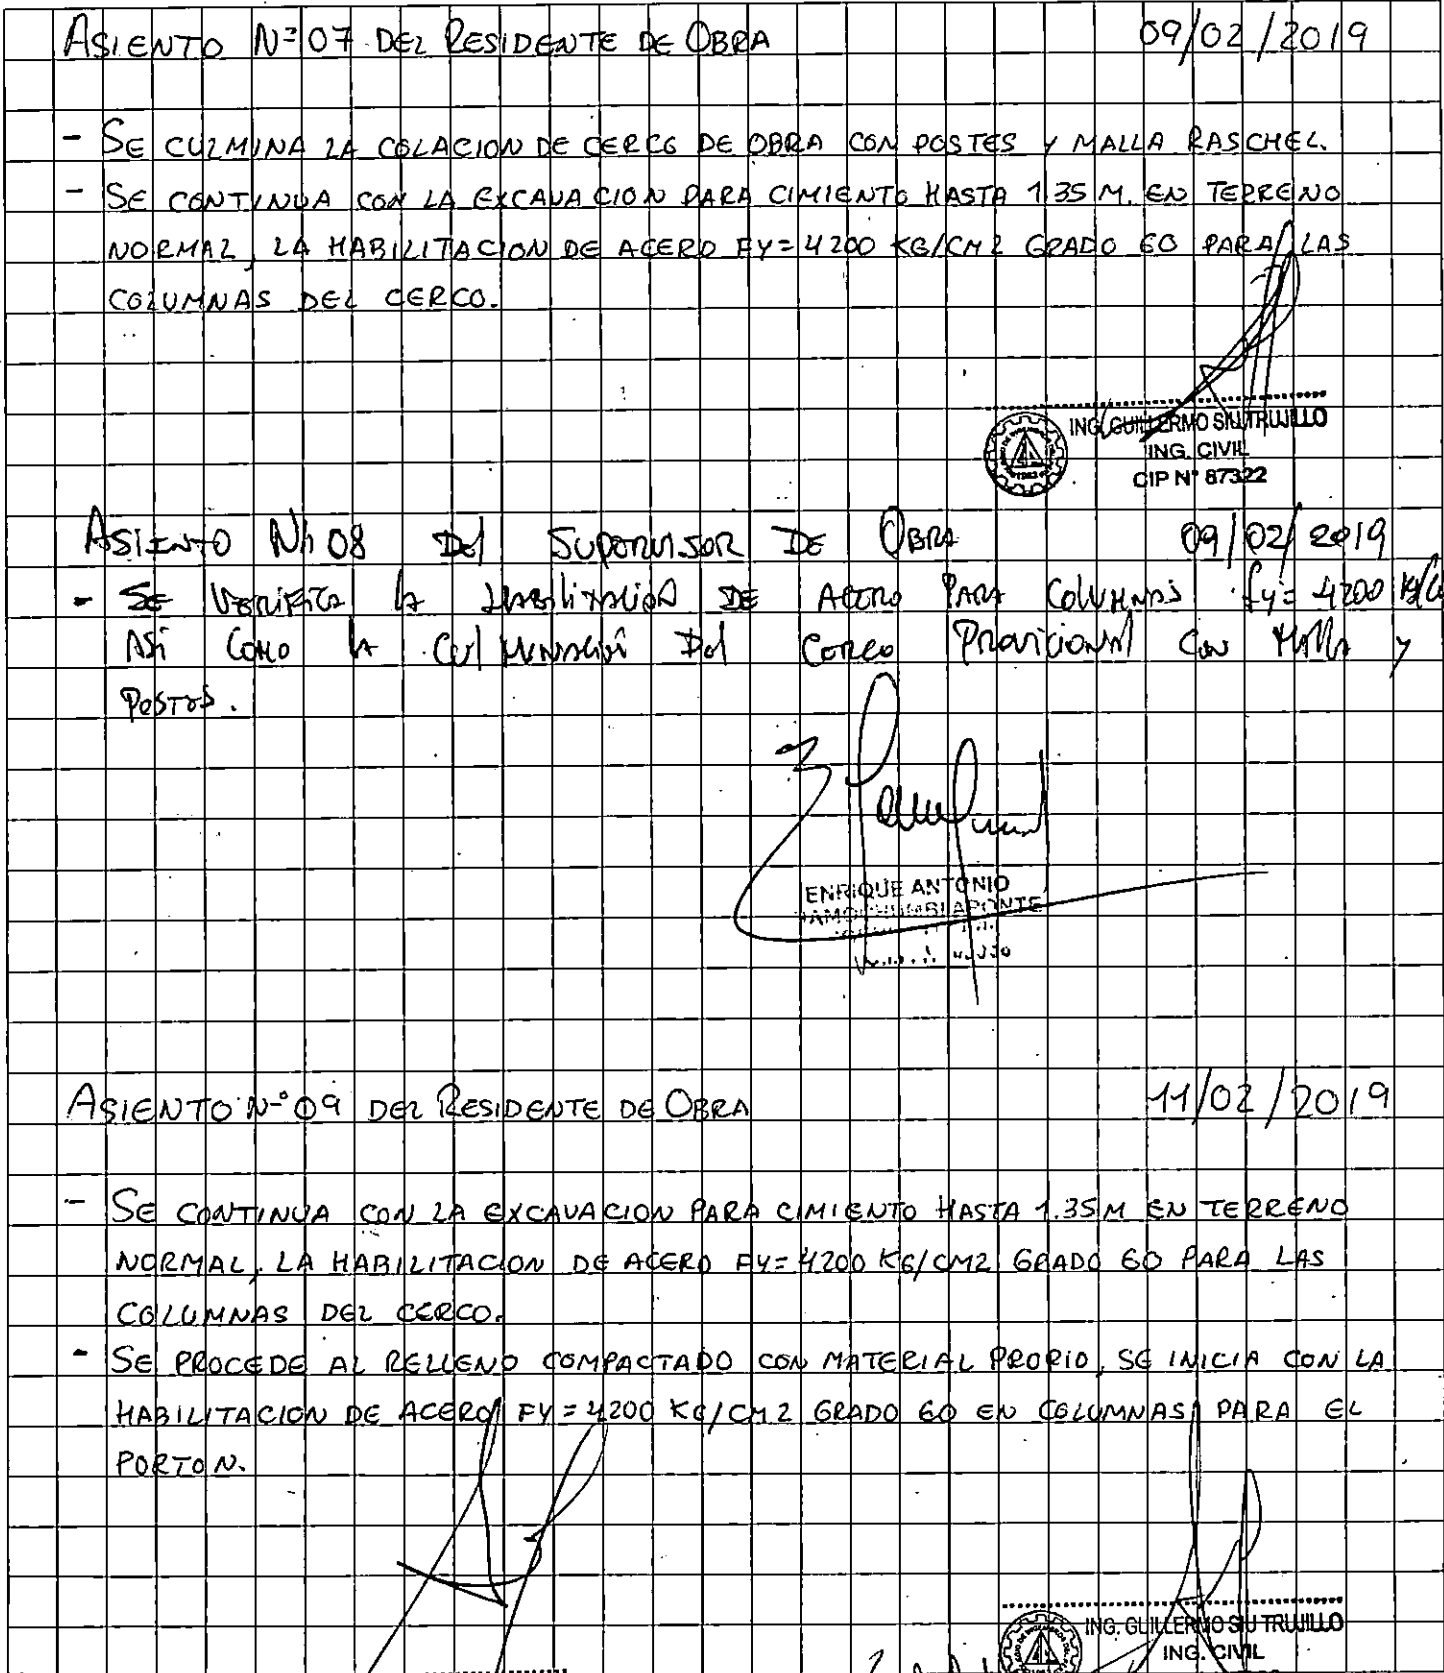 ASIENTO Nº 07 DEL RESIDENTE DE OBRA 09/02/2019
- SE CULMINA LA COLACION DE CERCO DE OBRA CON POSTES Y MALLA RASCHEL.
- SE CONTINUA CON LA EXCAVACION PARA CIMIENTO HASTA 1.35 M. EN TERRENO
NORMAL, LA HABILITACION DE ACERO FY=4200 KG/CM2 GRADO 60 PARA LAS
COLUMNAS DEL CERCO.
ING. GUILLERMO SIU TRUJILLO
ING. CIVIL
CIP N° 87322
ASIENTO Nº 08 Del SUPERVISOR DE OBRA 09/02/2019
- SE Verifica la Habilitación DE ACERO PARA COLUMNAS fy= 4200
ASi COMO la Culminación Del Cerco Provicional Con Malla y
Postes.
ENRIQUE ANTONIO
APONTE
ASIENTO N° 09 DEL RESIDENTE DE OBRA 11/02/2019
- SE CONTINUA CON LA EXCAVACION PARA CIMIENTO HASTA 1.35 M EN TERRENO
NORMAL, LA HABILITACION DE ACERO FY=4200 KG/CM2 GRADO 60 PARA LAS
COLUMNAS DEL CERCO.
- SE PROCEDE AL RELLENO COMPACTADO CON MATERIAL PROPIO, SE INICIA CON LA
HABILITACION DE ACERO FY=4200 KG/CM2 GRADO 60 EN COLUMNAS PARA EL
PORTON.
ING. GUILLERMO SIU TRUJILLO
ING. CIVIL